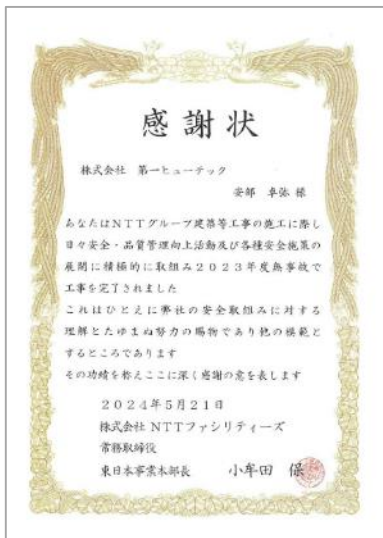 感謝状
株式会社 第一ヒューテック
安部 卓弥 様
あなたはNTTグループ建築等工事の施工に際し
日々安全・品質管理向上活動及び各種安全施策の
展開に積極的に取組み2023年度無事故で
工事を完了されました
これはひとえに弊社の安全取組みに対する
理解とたゆまぬ努力の賜物であり他の模範と
するところであります
その功績を称えここに深く感謝の意を表します
2024年5月21日
株式会社 NTTファシリティーズ
常務取締役
東日本事業本部長 小牟田 保